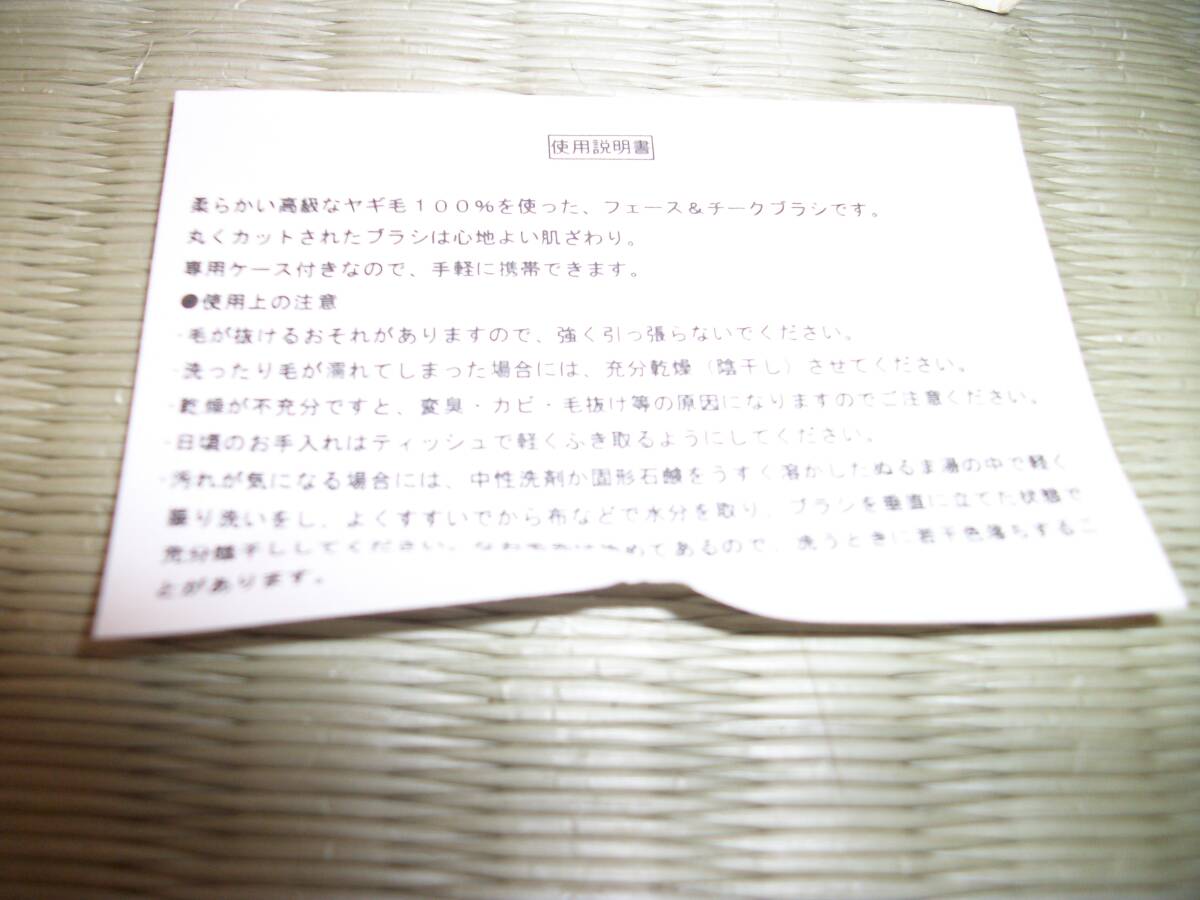 使用説明書
柔らかい高級なヤギ毛１００％を使った、フェース＆チークブラシです。
丸くカットされたブラシは心地よい肌ざわり。
専用ケース付きなので、手軽に携帯できます。
●使用上の注意
・毛が抜けるおそれがありますので、強く引っ張らないでください。
・洗ったり毛が濡れてしまった場合には、充分乾燥（陰干し）させてください。
・乾燥が不充分ですと、変臭・カビ・毛抜け等の原因になりますのでご注意ください。
・日頃のお手入れはティッシュで軽くふき取るようにしてください。
・汚れが気になる場合には、中性洗剤か固形石鹸をうすく溶かしたぬるま湯の中で軽く
振り洗いをし、よくすすいでから布などで水分を取り、ブラシを垂直に立てた状態で
充分陰干ししてください。なお めてあるので、洗うときに若干色落ちするこ
とがあります。